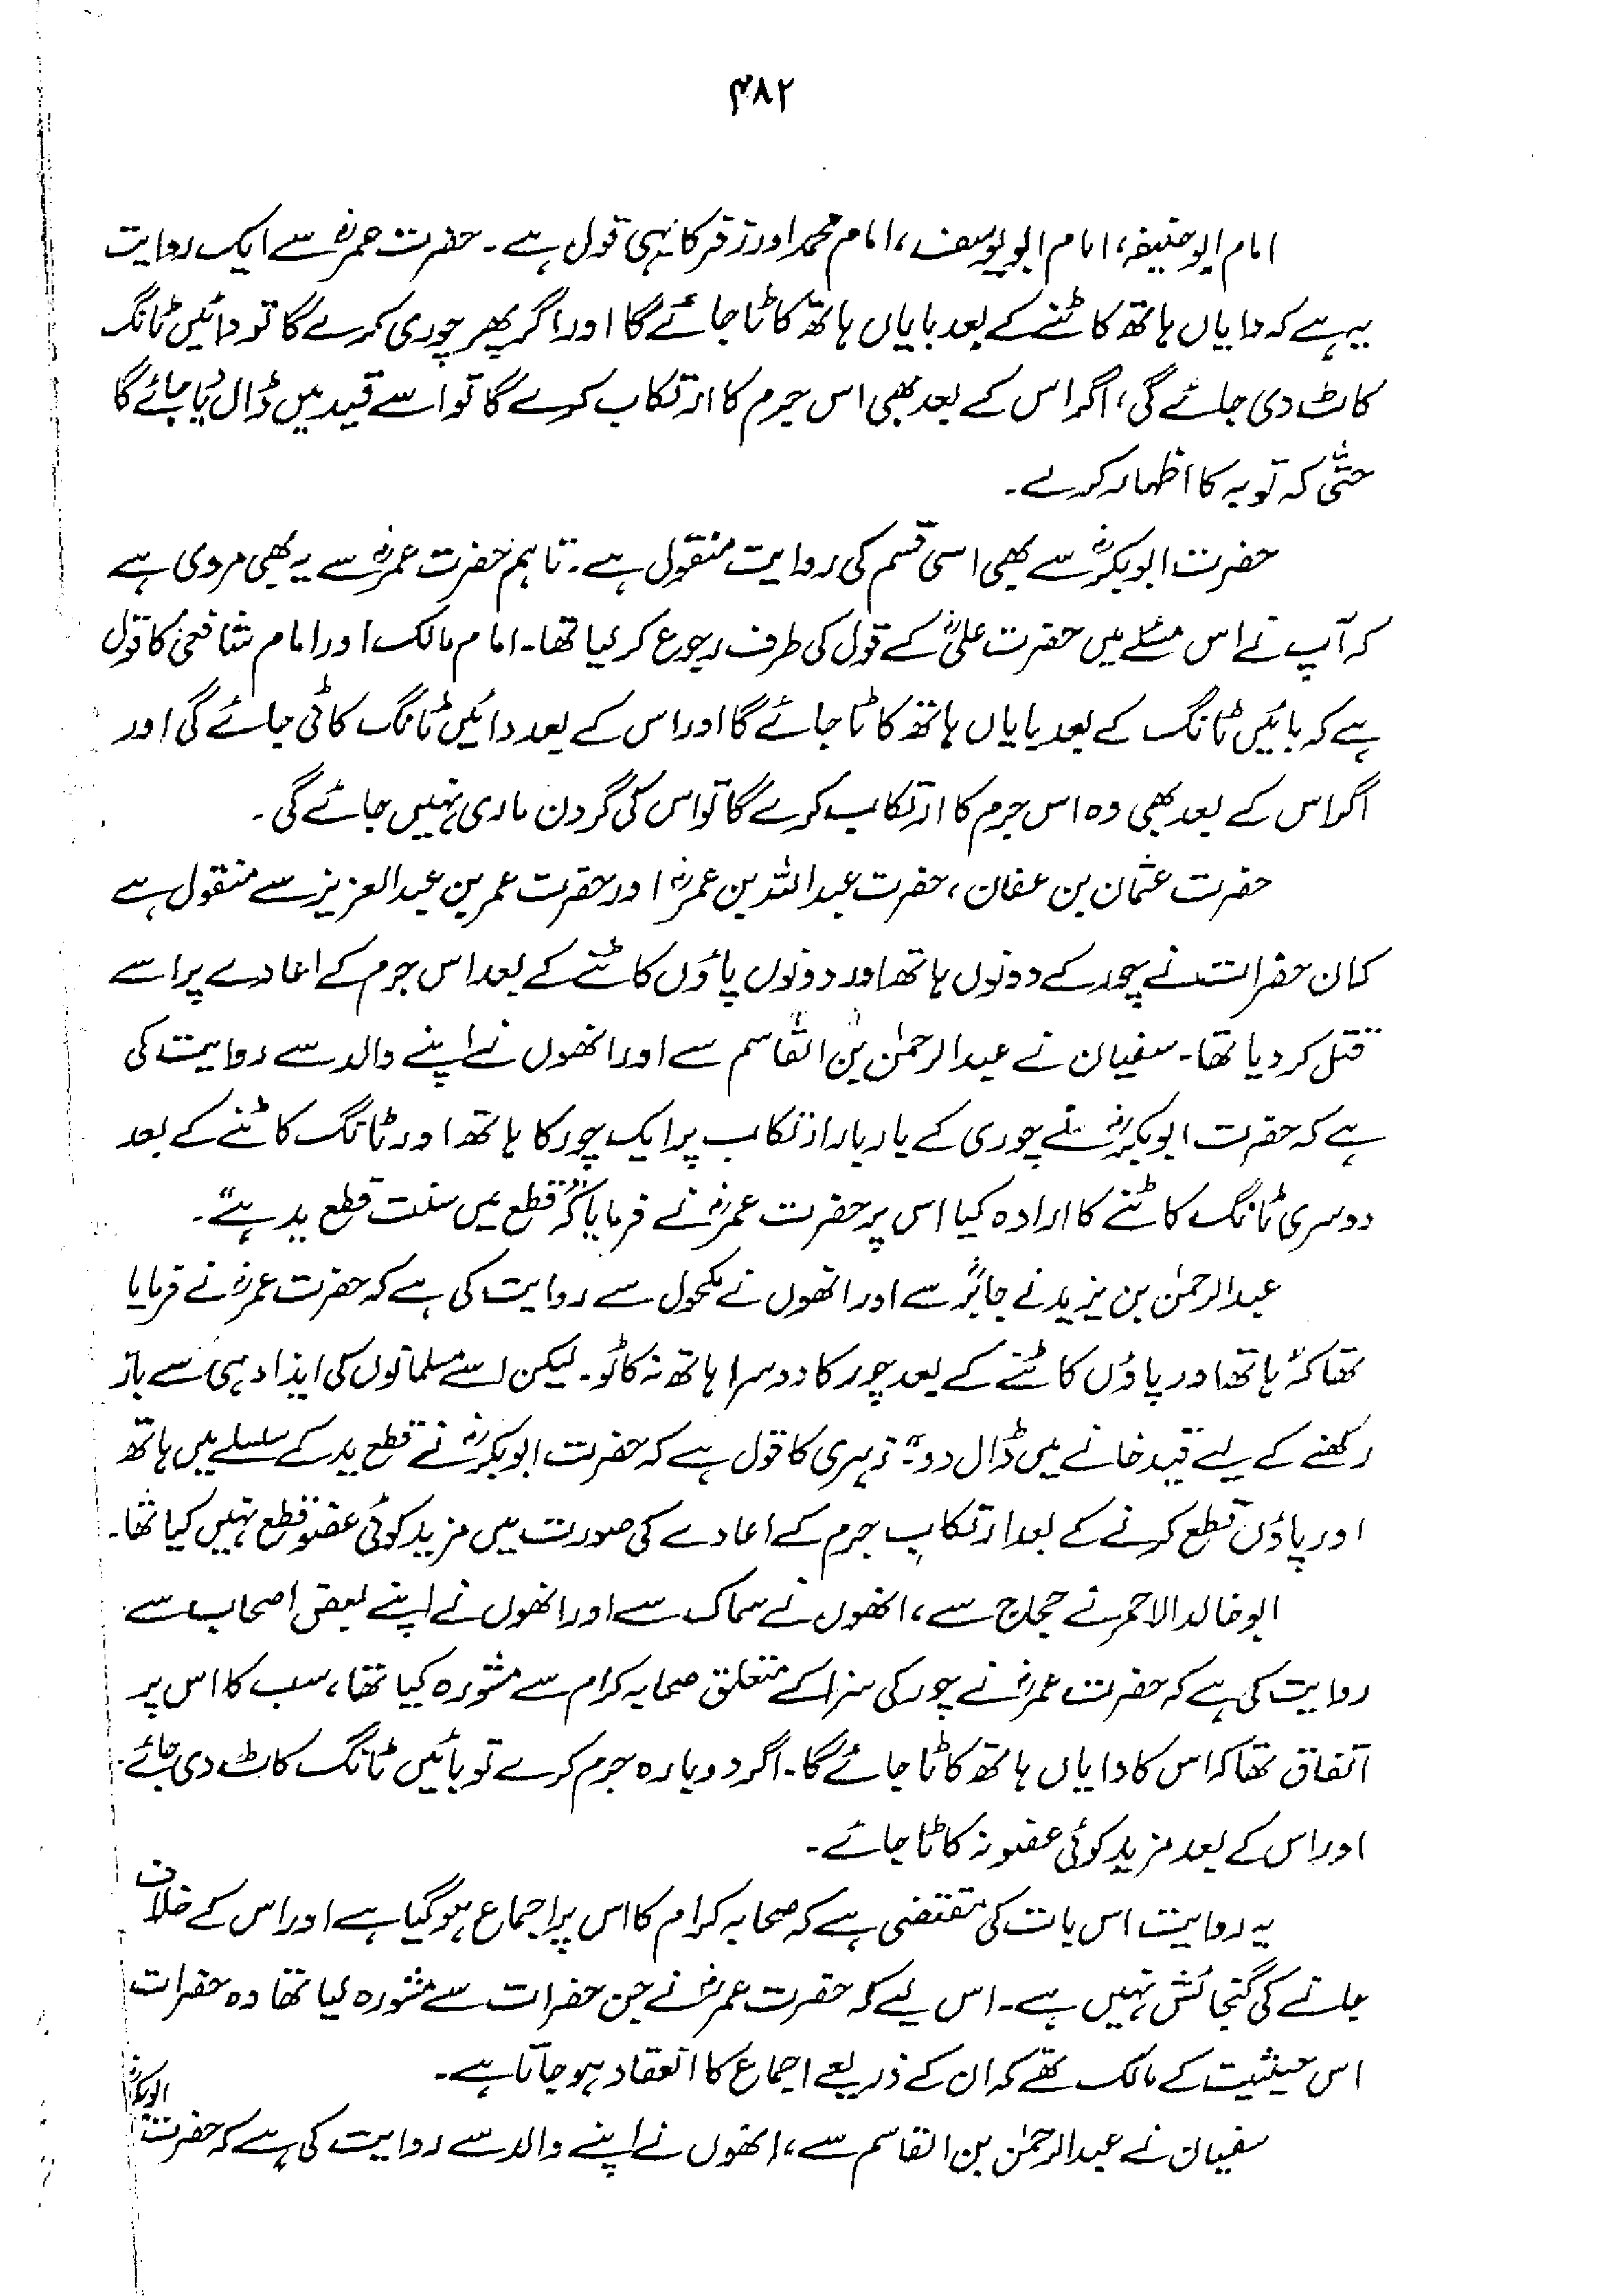 ۴۸۲
امام ابو حنیفہ، امام ابو یوسف، امام محمد اور زفر کا یہی قول ہے۔ حضرت عمرؓ سے ایک روایت
یہ ہے کہ دایاں ہاتھ کاٹنے کے بعد بایاں ہاتھ کاٹا جائے گا اور اگر پھر چوری کرے گا تو دائیں ٹانگ
کاٹ دی جائے گی، اگر اس کے بعد بھی اس جرم کا ارتکاب کرے گا تو اسے قید میں ڈال دیا جائے گا
حتّٰی کہ توبہ کا اظہار کرے۔
حضرت ابوبکرؓ سے بھی اسی قسم کی روایت منقول ہے۔ تاہم حضرت عمرؓ سے یہ بھی مروی ہے
کہ آپ نے اس مسئلے میں حضرت علیؓ کے قول کی طرف رجوع کر لیا تھا۔ امام مالک اور امام شافعیؒ کا قول
ہے کہ بائیں ٹانگ کے بعد بایاں ہاتھ کاٹا جائے گا اور اس کے بعد دائیں ٹانگ کاٹی جائے گی اور
اگر اس کے بعد بھی وہ اس جرم کا ارتکاب کرے گا تو اس کی گردن ماری نہیں جائے گی۔
حضرت عثمان بن عفان، حضرت عبداللہ بن عمرؓ اور حضرت عمر بن عبدالعزیز سے منقول ہے
کہ ان حضرات نے چور کے دونوں ہاتھ اور دونوں پاؤں کاٹنے کے بعد اس جرم کے اعادے پر اسے
قتل کر دیا تھا۔ سفیان نے عبدالرحمٰن بن القاسم سے اور انھوں نے اپنے والد سے روایت کی
ہے کہ حضرت ابوبکرؓ نے چوری کے بار بار ارتکاب پر ایک چور کا ہاتھ اور ٹانگ کاٹنے کے بعد
دوسری ٹانگ کاٹنے کا ارادہ کیا اس پر حضرت عمرؓ نے فرمایا کہ "قطع میں سنت قطع ید ہے"۔
عبدالرحمٰن بن یزید نے جابرؓ سے اور انھوں نے مکحول سے روایت کی ہے کہ حضرت عمرؓ نے فرمایا
تھا کہ "ہاتھ اور پاؤں کاٹنے کے بعد چور کا دوسرا ہاتھ نہ کاٹو۔ لیکن اسے مسلمانوں کی ایذا دہی سے باز
رکھنے کے لیے قید خانے میں ڈال دو"۔ زہری کا قول ہے کہ حضرت ابوبکرؓ نے قطع ید کے سلسلے میں ہاتھ
اور پاؤں قطع کرنے کے بعد ارتکابِ جرم کے اعادے کی صورت میں مزید کوئی عضو قطع نہیں کیا تھا۔
ابو خالد الاحمر نے حجاج سے، انھوں نے سماک سے اور انھوں نے اپنے بعض اصحاب سے
روایت کی ہے کہ حضرت عمرؓ نے چور کی سزا کے متعلق صحابہ کرام سے مشورہ کیا تھا، سب کا اس پر
اتفاق تھا کہ اس کا دایاں ہاتھ کاٹا جائے گا۔ اگر دوبارہ جرم کرے تو بائیں ٹانگ کاٹ دی جائے۔
اور اس کے بعد مزید کوئی عضو نہ کاٹا جائے۔
یہ روایت اس بات کی مقتضی ہے کہ صحابہ کرام کا اس پر اجماع ہو گیا ہے اور اس کے خلاف
جانے کی گنجائش نہیں ہے۔ اس لیے کہ حضرت عمرؓ نے جن حضرات سے مشورہ لیا تھا وہ حضرات
اس حیثیت کے مالک تھے کہ ان کے ذریعے اجماع کا انعقاد ہو جاتا ہے۔
سفیان نے عبدالرحمٰن بن القاسم سے، انھوں نے اپنے والد سے روایت کی ہے کہ حضرت ابوبکرؓ